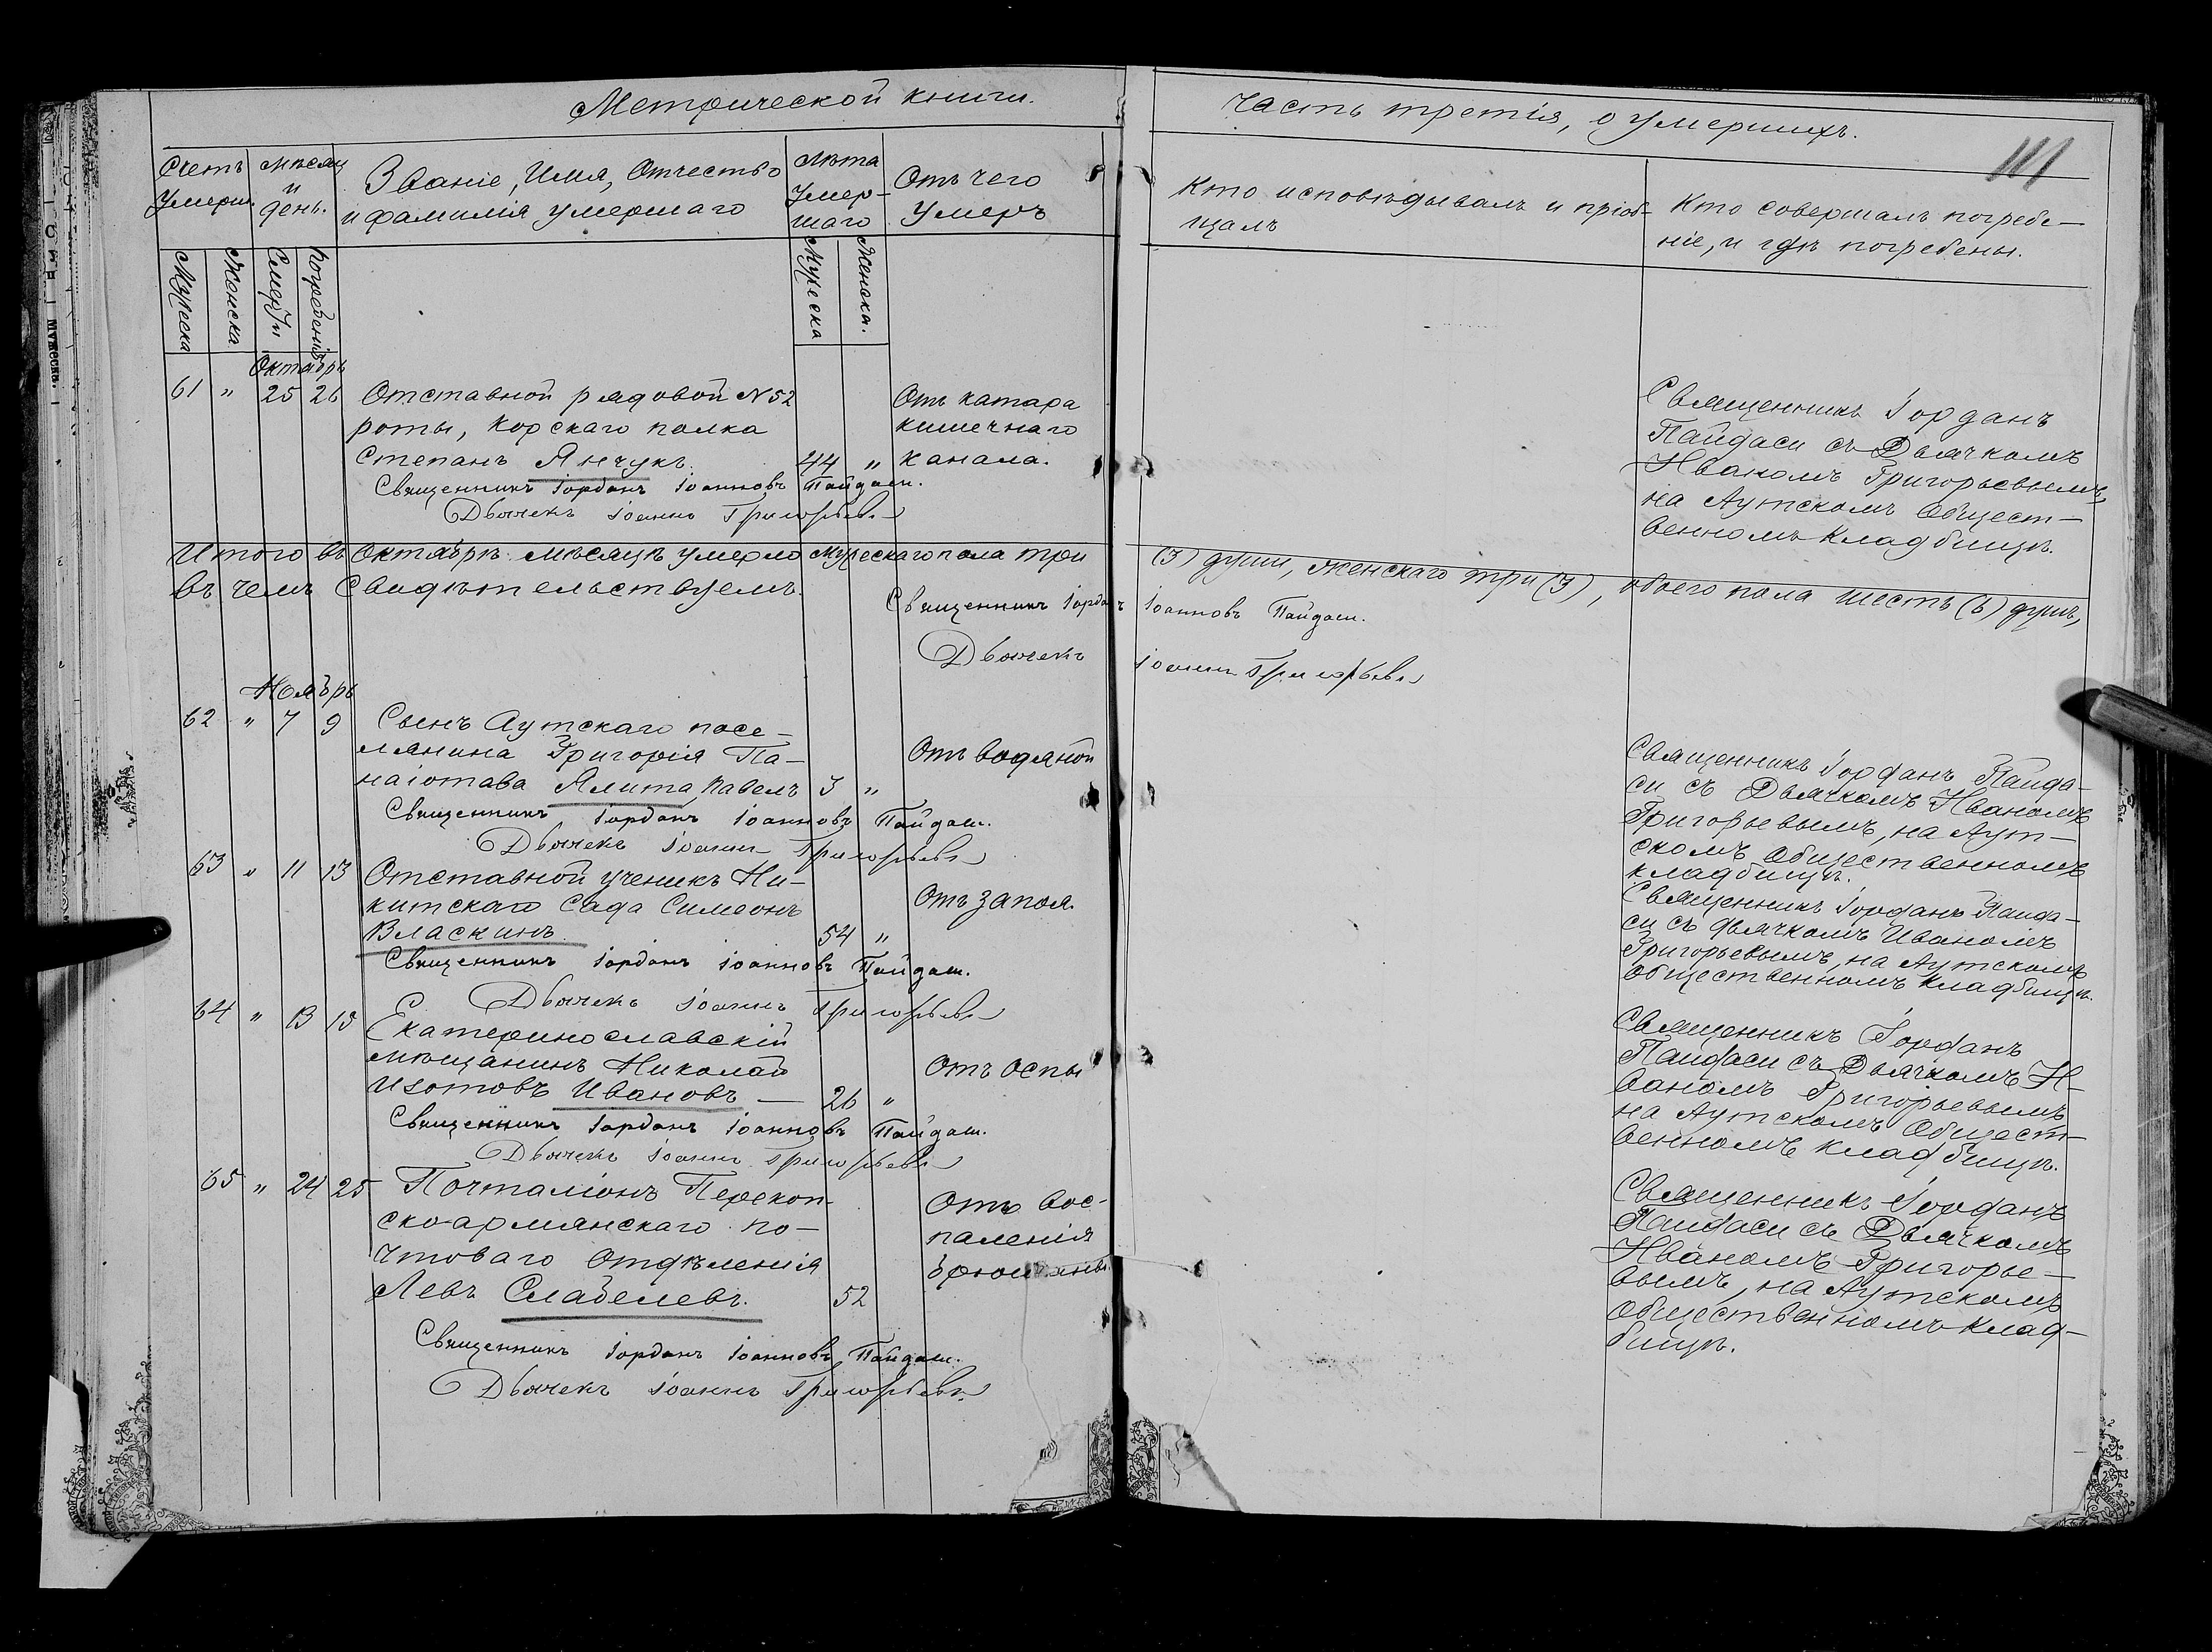 Метрической книги.
Счетъ умерш.
Мѣсяц и день.
Званіе, Имя, Отчество и фамилія умершаго
Лѣта Умер-шаго
Отъ чего умеръ
Мужеска
Женска
Смерти
Погребенія
Мужеска
Женска.
Октябрь
61 " 25 26 Отставной рядовой N 52
роты, Корскаго полка
Степанъ Янчукъ. 44 "
Отъ катара
кишечнаго
канала.
Священникъ Іорданъ Іоанновъ Пайдаси.
Дьячекъ Іоаннъ Григорьевъ
Итого въ Октябрѣ мѣсяцѣ умерло мужескаго пола три
въ чемъ свидѣтельствуемъ.
Священникъ Іорданъ Іоанновъ Пайдаси.
Дьячекъ Іоаннъ Григорьевъ
Ноябрь
62 " 7 9 Сынъ Аутскаго посе-
лянина Григорія Па-
наіотава Ялита, Павелъ 3 "
Отъ водяной
Священникъ Іорданъ Іоанновъ Пайдаси.
Дьячекъ Іоаннъ Григорьевъ
63 " 11 13 Отставной ученикъ Ни-
китскаго Сада Симеонъ
Власкинъ. 54 "
Отъ запоя.
Священникъ Іорданъ Іоанновъ Пайдаси.
Дьячекъ Іоаннъ Григорьевъ
64 " 13 15 Екатеринославскій
мѣщанинъ Николай
Изотовъ Ивановъ — 26 "
Отъ оспы
Священникъ Іорданъ Іоанновъ Пайдаси.
Дьячекъ Іоаннъ Григорьевъ
65 " 24 25 Почталіонъ Перекоп-
ско-армянскаго по-
чтоваго отдѣленія
Левъ Слабелевъ. 52
Отъ вос-
паленія
брюшины.
Священникъ Іорданъ Іоанновъ Пайдаси.
Дьячекъ Іоаннъ Григорьевъ
Часть третія, о умершихъ.
111
Кто исповѣдывалъ и пріоб-
щалъ
Кто совершалъ погребе-
ніе, и гдѣ погребены.
Священникъ Іорданъ
Пайдаси съ Дьячкомъ
Иваномъ Григорьевымъ,
на Аутскомъ общест-
венномъ кладбищѣ.
(3) души, женскаго три (3), обоего пола шесть (6) душъ,
Священникъ Іорданъ Пайда-
си съ Дьячкомъ Иваномъ
Григорьевымъ, на Аут-
скомъ общественномъ
кладбищѣ.
Священникъ Іорданъ Пайда-
си съ дьячкомъ Иваномъ
Григорьевымъ, на Аутскомъ
общественномъ кладбищѣ.
Священникъ Іорданъ
Пайдаси съ Дьячкомъ И-
ваномъ Григорьевымъ
на Аутскомъ Общест-
венномъ кладбищѣ.
Священникъ Іорданъ
Пайдаси съ Дьячкомъ
Иваномъ Григорье-
вымъ, на Аутскомъ
общественномъ клад-
бищѣ.